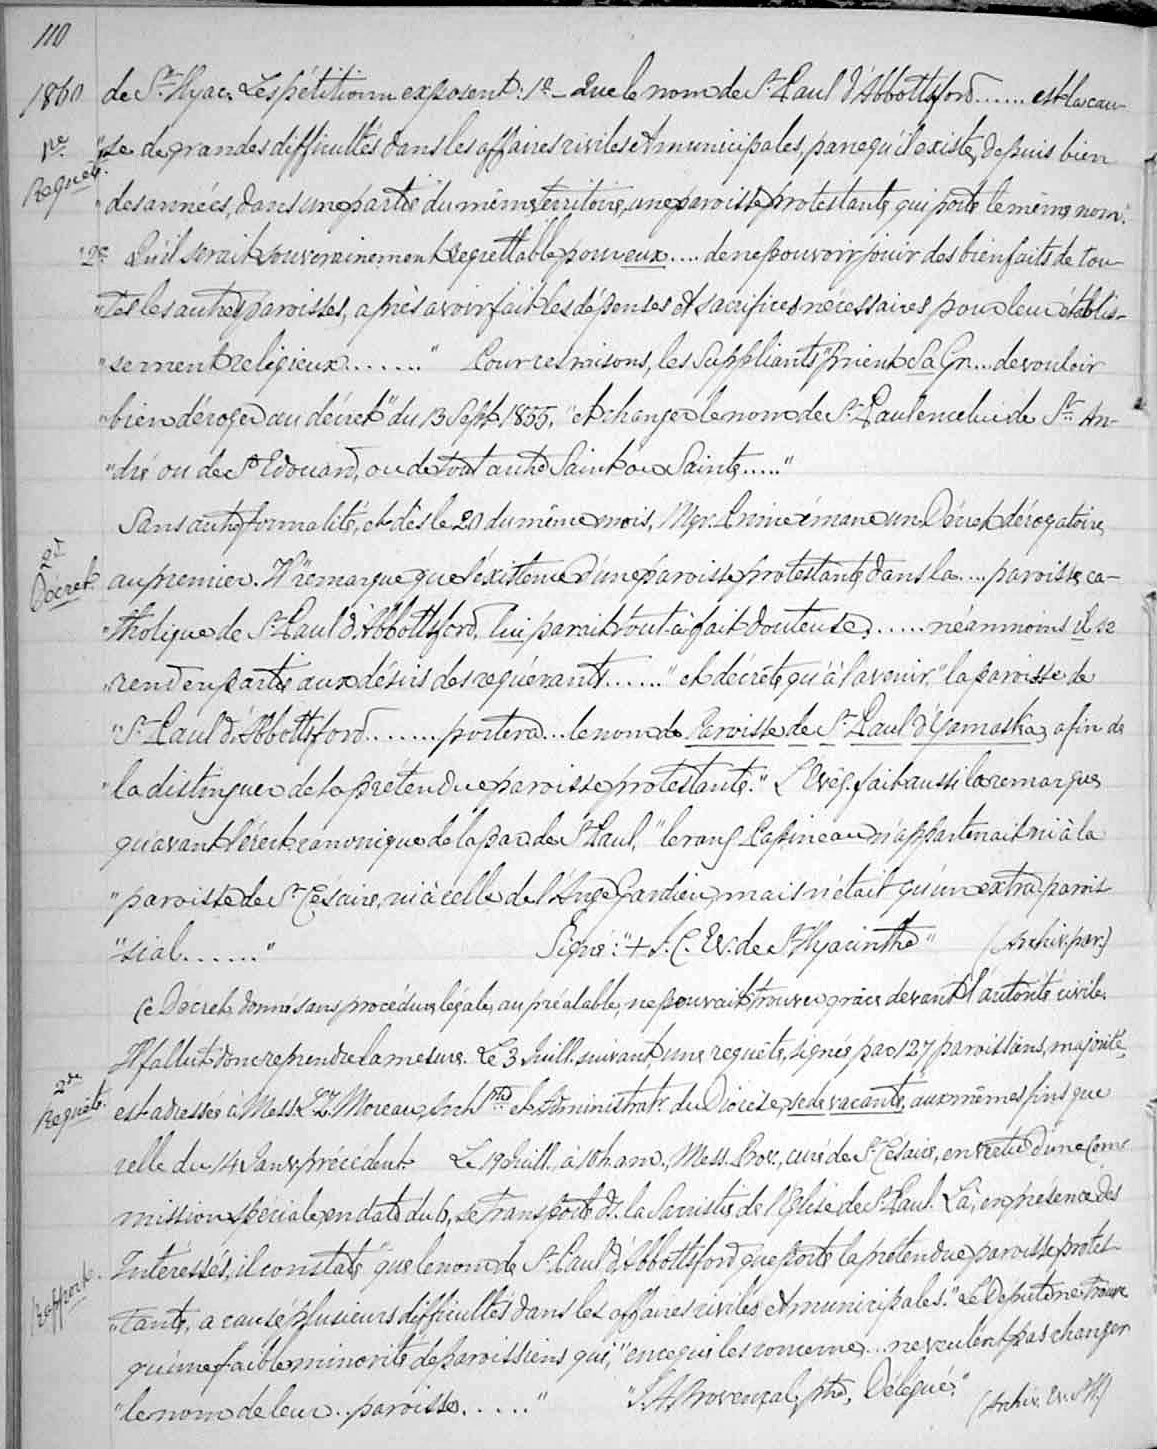 110
1860 de St Hyac. Les pétitionn. exposent: 1o - Que le nom de St Paul d'Abbottsford ...... est la cau-
1re Requête. "se de grandes difficultés dans les affaires civiles et municipales, parce qu'il existe, depuis bien
"des années, dans une partie du même territoire, une paroisse protestante, qui porte le même nom."
"2o Qu'il serait souverainement regrettable pour eux .... de ne pouvoir jouir des bienfaits de tou-
"tes les autres paroisses, après avoir fait les dépenses et sacrifices nécessaires pour leur établis-
"sement religieux ......" Pour ces raisons, les Suppliants "prient Sa Gr... de vouloir
"bien déroger au décret" du 13 Sept. 1855, "et changer le nom de St Paul en celui de St An-
"dré ou de St Edouard, ou de tout autre Saint ou Sainte ....."
Sans autre formalité, et dès le 20 du même mois, Mgr. Prince émane un Décret dérogatoire
2d Décret. au premier. Il "remarque que l'existence d'une paroisse protestante, dans la .... paroisse ca-
"tholique de St Paul d'Abbottsford, lui parait tout-à-fait douteuse, ...... néanmoins il se
"rend en partie aux désirs des requérants ......" et décrète qu'à l'avenir, "la paroisse de
"St Paul d'Abbottsford ........ portera ... le nom de Paroisse de St Paul d'Yamaska, afin de
"la distinguer de la prétendue paroisse protestante." L'Evêq. fait aussi la remarque
qu'avant l'érect. canonique de la par. de St Paul, "le rang Papineau n'appartenait ni à la
"paroisse de St Césaire, ni à celle de l'Ange Gardien, mais n'était qu'un extra-parois-
"sial ......" Signé: "+ J. C. Ev. de St Hyacinthe" (Archiv. par.)
Ce Décret, donné sans procédure légale, au préalable, ne pouvait trouver grâce devant l'autorité civile.
Il fallut donc reprendre la mesure. Le 3 Juill. suivant, une requête, signée par 127 paroissiens, majorité,
2de Requête. est adressée à Mess. L. Z. Moreau, Ptre et Administratr du Diocèse, sede vacante, aux mêmes fins que
celle du 14 Janv. précédent. Le 19 Juill. à 10 h. a.m., Mess. Prov., curé de St Césaire, en vertu d'une Com-
mission spéciale, en date du 6, se transporte ds. la Sacristie de l'Eglise de St Paul. Là, en présence des
Rapport. Intéressés, il constate "que le nom de St Paul d'Abbottsford que porte la prétendue paroisse protes-
"tante, a causé plusieurs difficultés dans les affaires civiles et municipales." Le Député ne trouve
qu'une faible minorité de paroissiens qui, "en ce qui les concerne, ... ne veulent pas changer
"le nom de leur .. paroisse ....." "J. A. Provençal, ptre, Délégué." (Archiv. Ev. St H.)